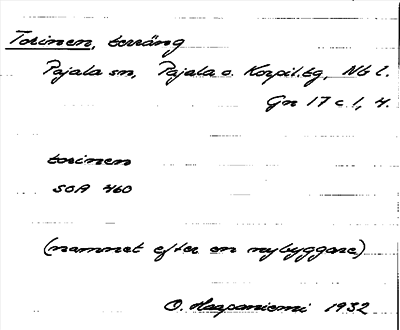 Torinen, terräng
Pajala sn, Pajala o. Korpil. tg, Nb l.
Gn 17 c 1, 4.
torinen
SOA 460
(namnet efter en nybyggare)
O. Haapaniemi 1932